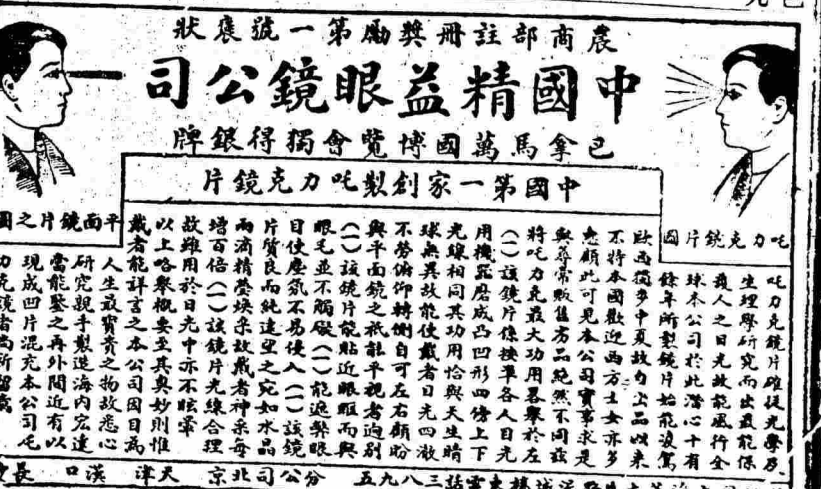 農商部註冊獎勵第一號褒狀
中國精益眼鏡公司
巴拿馬萬國博覽會獨得銀牌
中國第一家創製吒力克鏡片
吒力克鏡片圖
平面鏡片之圖
吒力克鏡片確從光學及
生理學研究而出最能保
護人之目光故能風行全
球本公司於此潛心十有
餘年所製鏡片始能凌駕
歐西獨步中夏故勻出品以來
不特本國歡迎西方士女亦多
惠顧此可見本公司實事求是
與尋常販售劣品絕然不同茲
將吒力克最大功用畧舉於左
(一)該鏡片係按準各人目光
用機器磨成凸凹形四傍上下
光線相同其功用恰與天生睛
球無異故能使戴者目光四澈
不勞俯仰轉側自可左右顧盼
與平面鏡之祇能平視者迥別
(一)該鏡片能貼近眼眶而與
眼毛並不觸礙(一)能遮弊眼
目使塵氛不易侵入(一)該鏡
片質良而純遠望之宛如水晶
兩滴精瑩煥采故戴者神采每
增百倍(一)該鏡片光線合理
故雖用於日光中亦不眩暈
以上畧舉概要至其奧妙則惟
戴者能詳言之本公司因目為
人生最寶貴之物故悉心
研究親手製造海內宏達
當能鑒之再外間近有以
現成凹片混充本公司吒
力克讀者尚祈留意
話三八九五
分公司北京
天津
漢口